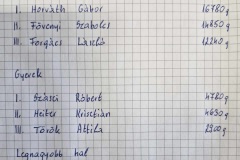 I. Horváth Gábor 16780 g
II. Fövenyi Szabolcs 14850 g
III. Forgács László 12240 g
Gyerek
I. Szászi Róbert 4780 g
II. Heiter Krisztián 4690 g
III. Török Attila 2900 g
Legnagyobb hal